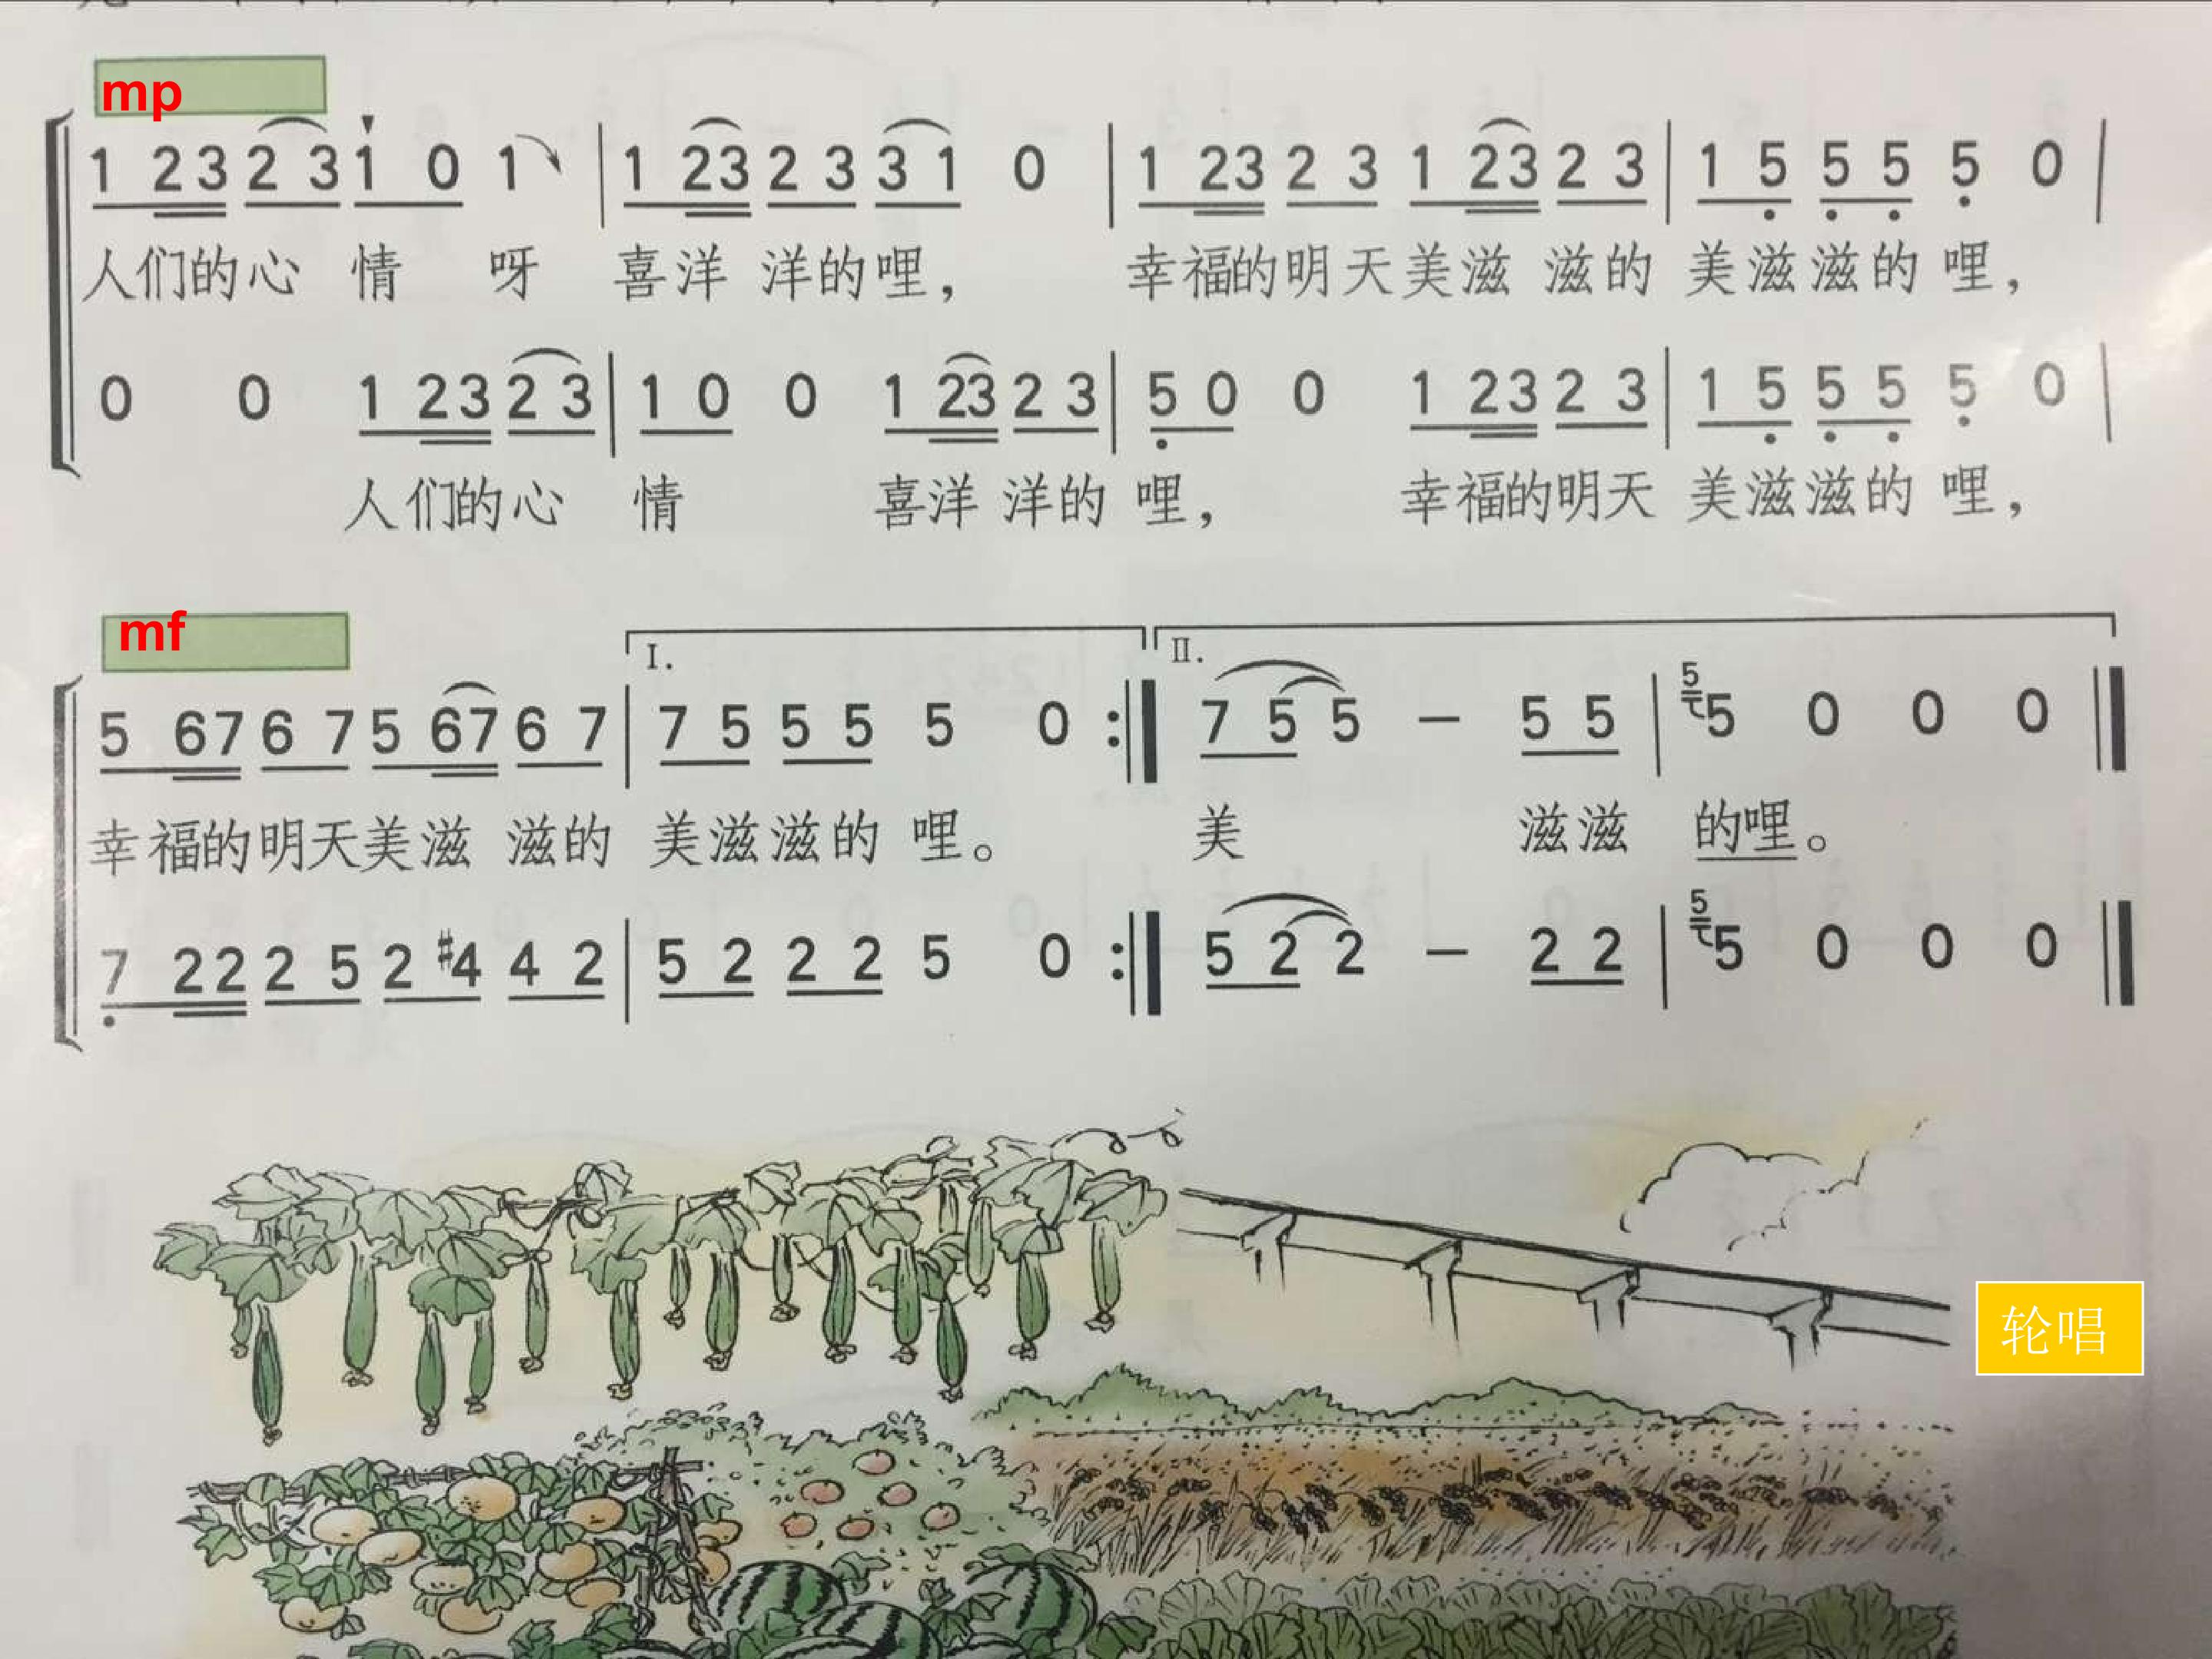 mp
1 23 2 3 1 0 1 | 1 23 2 3 3 1 0 | 1 23 2 3 1 23 2 3 | 1 5̣ 5̣ 5̣ 5̣ 0 |
人们的心 情 呀 喜洋 洋的哩, 幸福的明天美滋 滋的 美滋滋的 哩,
0 0 1 23 2 3 | 1 0 0 1 23 2 3 | 5̣ 0 0 1 23 2 3 | 1 5̣ 5̣ 5̣ 5̣ 0 |
人们的心 情 喜洋 洋的 哩, 幸福的明天 美滋滋的 哩,
mf
I. II.
5 67 6 7 5 67 6 7 | 7 5 5 5 5 0 :| 7 5 5 — 5 5 | 5 5 0 0 0 ||
幸福的明天美滋 滋的 美滋滋的 哩。 美 滋滋 的哩。
7̣ 22 2 5 2 #4 4 2 | 5 2 2 2 5 0 :| 5 2 2 — 2 2 | 5 5 0 0 0 ||
轮唱